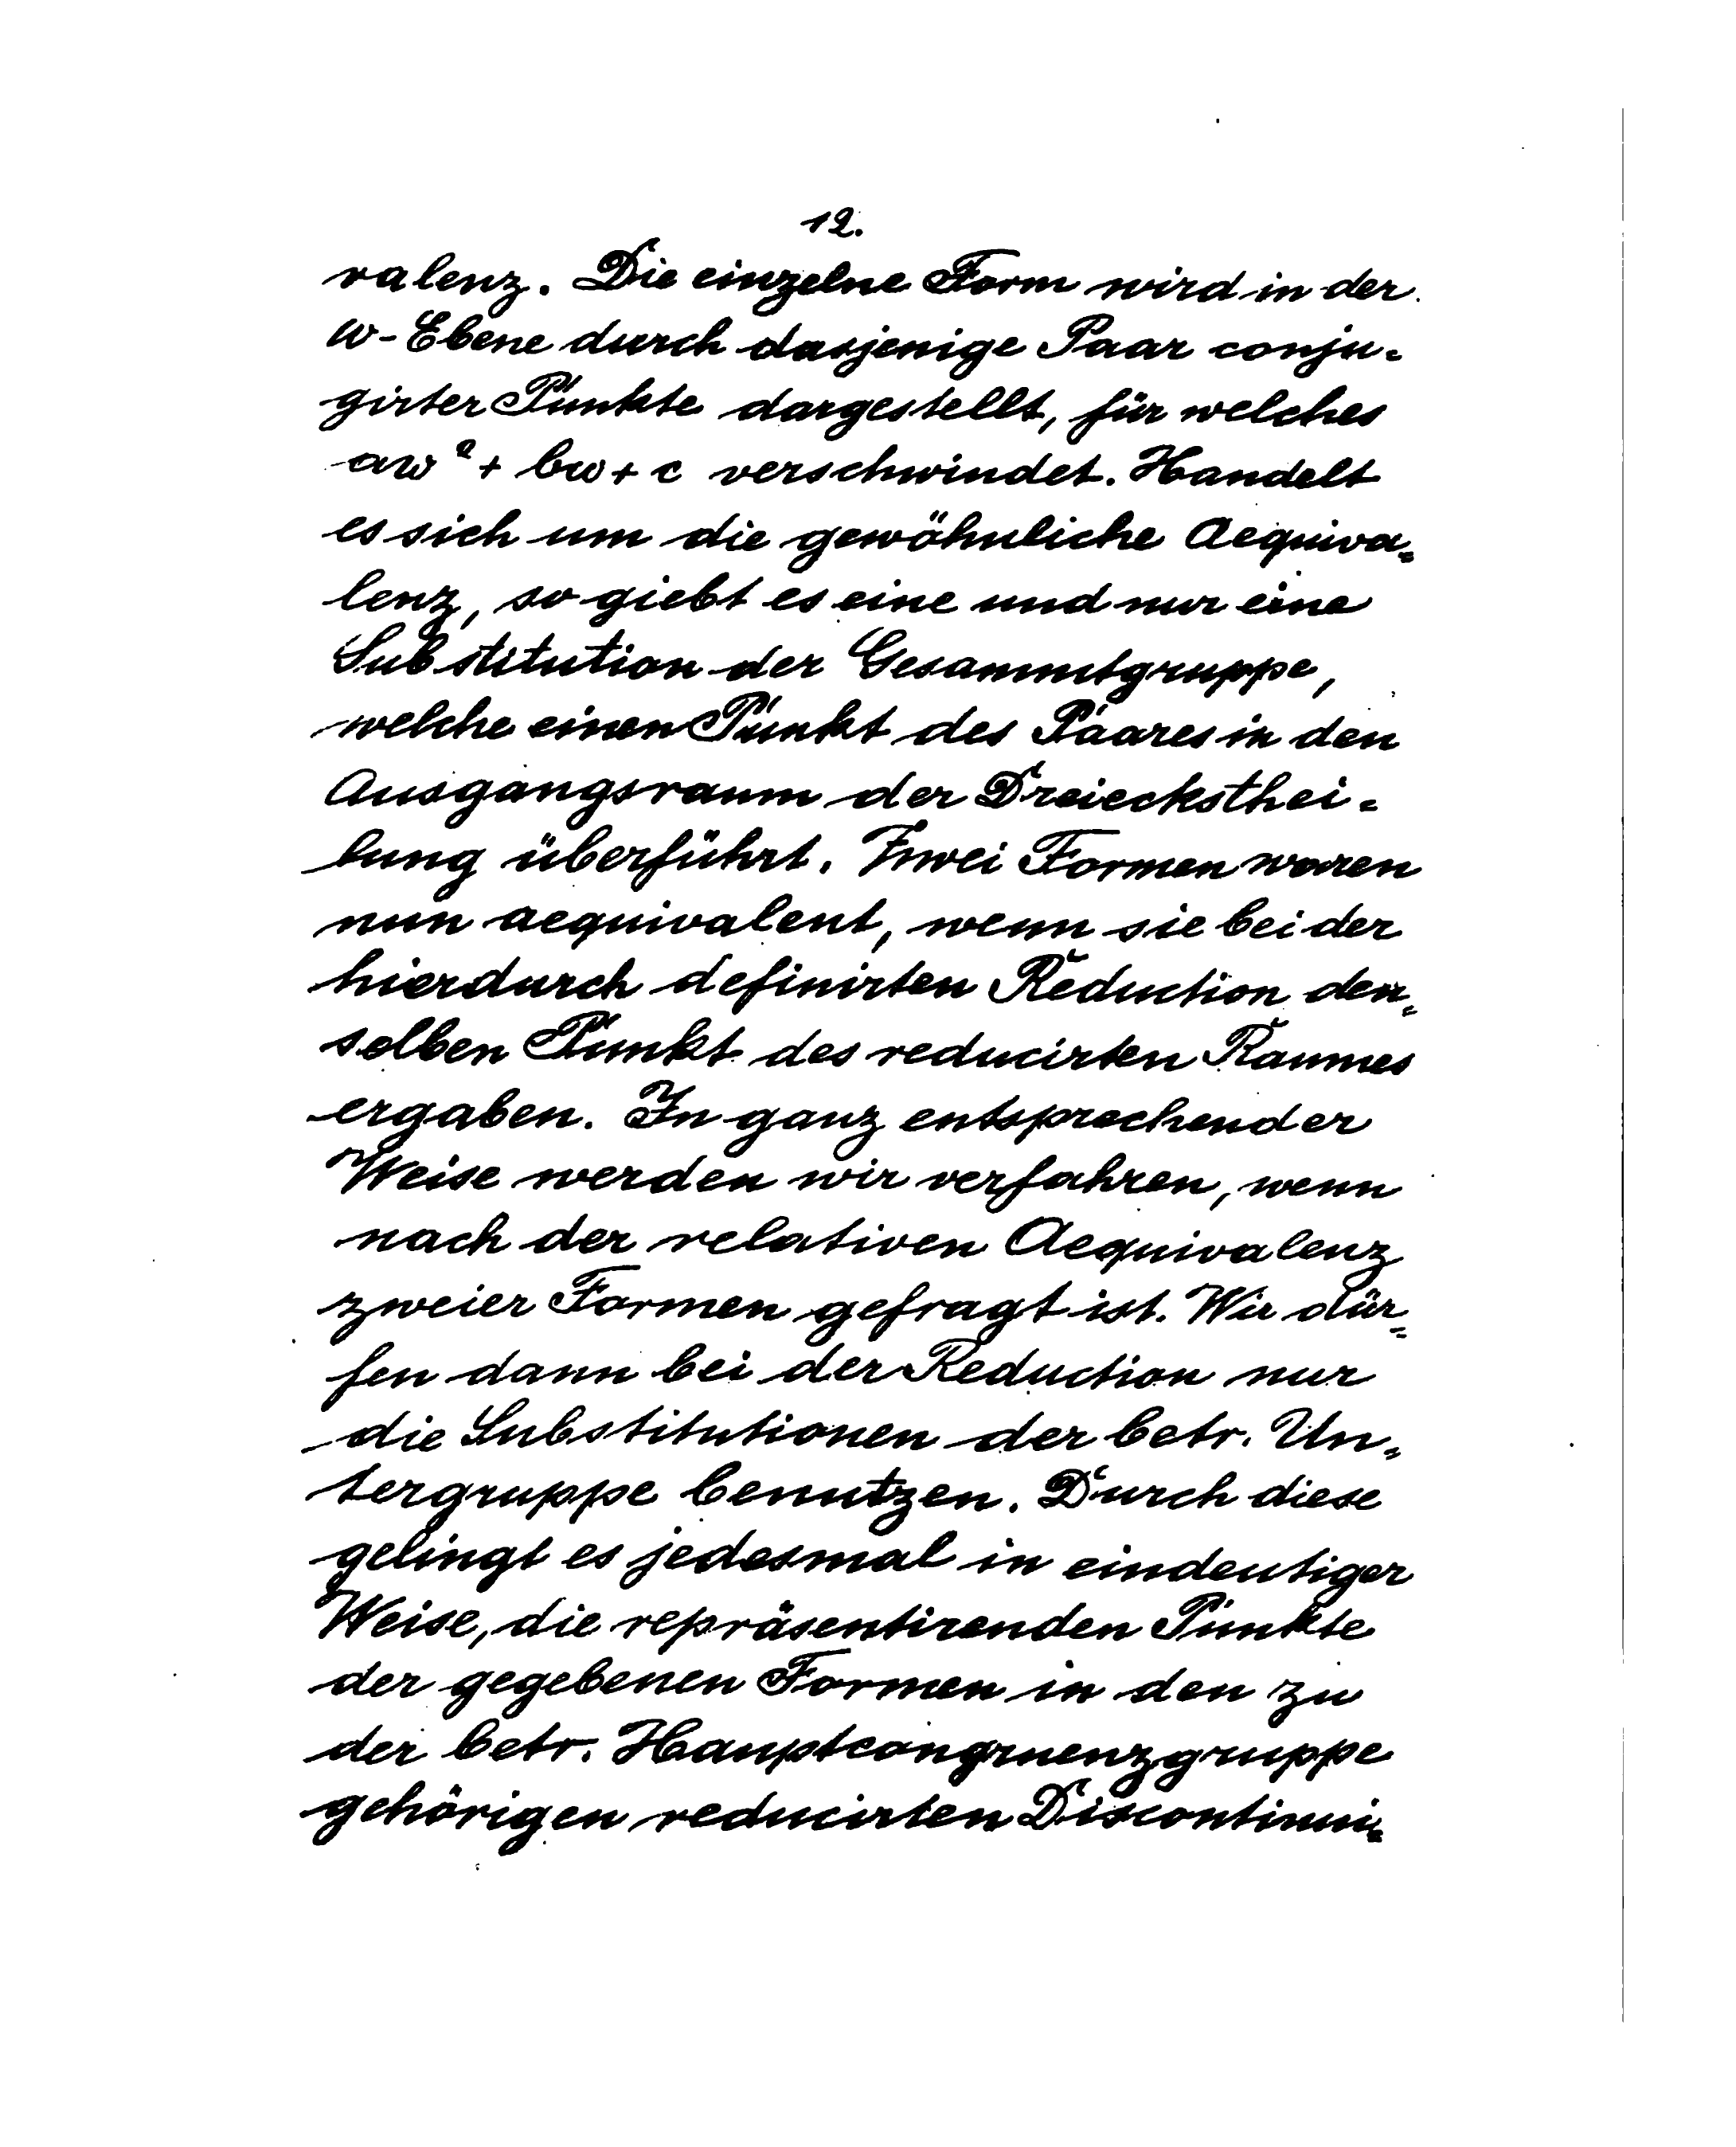 12.
valenz. Die einzelne Form wird in der
w-Ebene durch dasjenige Paar conju-
girter Punkte dargestellt, für welches
aw² + bw + c verschwindet. Handelt
es sich um die gewöhnliche Aequiva-
lenz, so giebt es eine und nur eine
Substitution der Gesammtgruppe,
welche einen Punkt des Paares in den
Ausgangsraum der Dreiecksthei-
lung überführt. Zwei Formen waren
nun aequivalent, wenn sie bei der
hierdurch definirten Reduction den-
selben Punkt des reducirten Raumes
ergaben. In ganz entsprechender
Weise werden wir verfahren, wenn
nach der relativen Aequivalenz
zweier Formen gefragt ist. Wir dür-
fen dann bei der Reduction nur
die Substitutionen der betr. Un-
tergruppe benutzen. Durch diese
gelingt es jedesmal in eindeutiger
Weise, die repräsentirenden Punkte
der gegebenen Formen in den zu
der betr. Hauptcongruenzgruppe
gehörigen reducirten Discontinui-